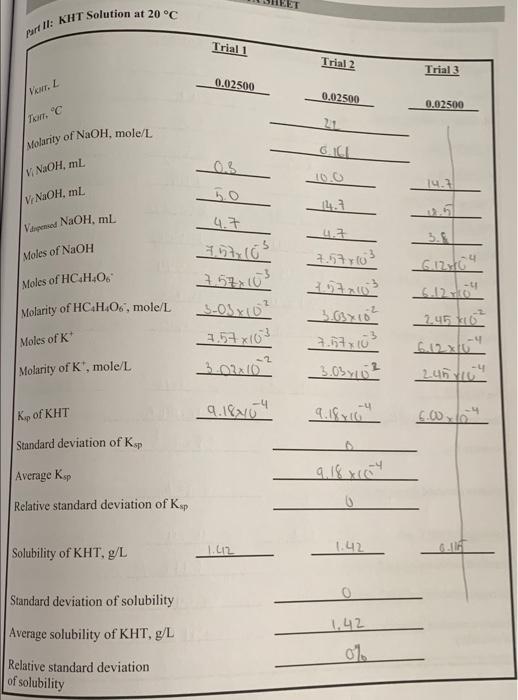 SHEET
Part II: KHT Solution at 20 °C
Trial 1 Trial 2 Trial 3
V_KHT, L 0.02500 0.02500 0.02500
T_KHT, °C 21
Molarity of NaOH, mole/L 0.161
V_i NaOH, mL 0.3 10.0 14.7
V_f NaOH, mL 5.0 14.7 18.5
V_dispensed NaOH, mL 4.7 4.7 3.8
Moles of NaOH 7.57x10^-3 7.57x10^-3 6.12x10^-4
Moles of HC₄H₄O₆⁻ 7.57x10^-3 7.57x10^-3 6.12x10^-4
Molarity of HC₄H₄O₆⁻, mole/L 3.03x10^-2 3.03x10^-2 2.45x10^-2
Moles of K⁺ 7.57x10^-3 7.57x10^-3 6.12x10^-4
Molarity of K⁺, mole/L 3.03x10^-2 3.03x10^-2 2.45x10^-4
K_sp of KHT 9.18x10^-4 9.18x10^-4 6.00x10^-4
Standard deviation of K_sp 0
Average K_sp 9.18x10^-4
Relative standard deviation of K_sp 0
Solubility of KHT, g/L 1.42 1.42
Standard deviation of solubility 0
Average solubility of KHT, g/L 1.42
Relative standard deviation 0%
of solubility